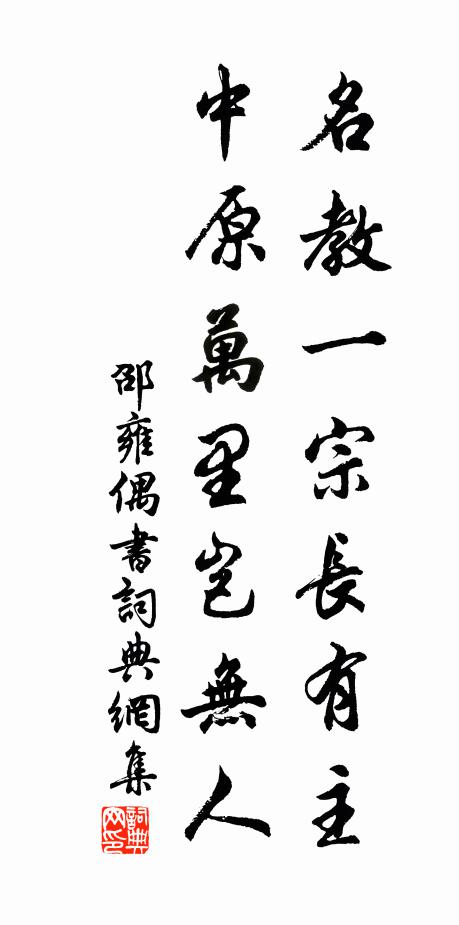 名教一宗長有主
中原萬里豈無人
邵雍偶書詞典網集
詞典网印